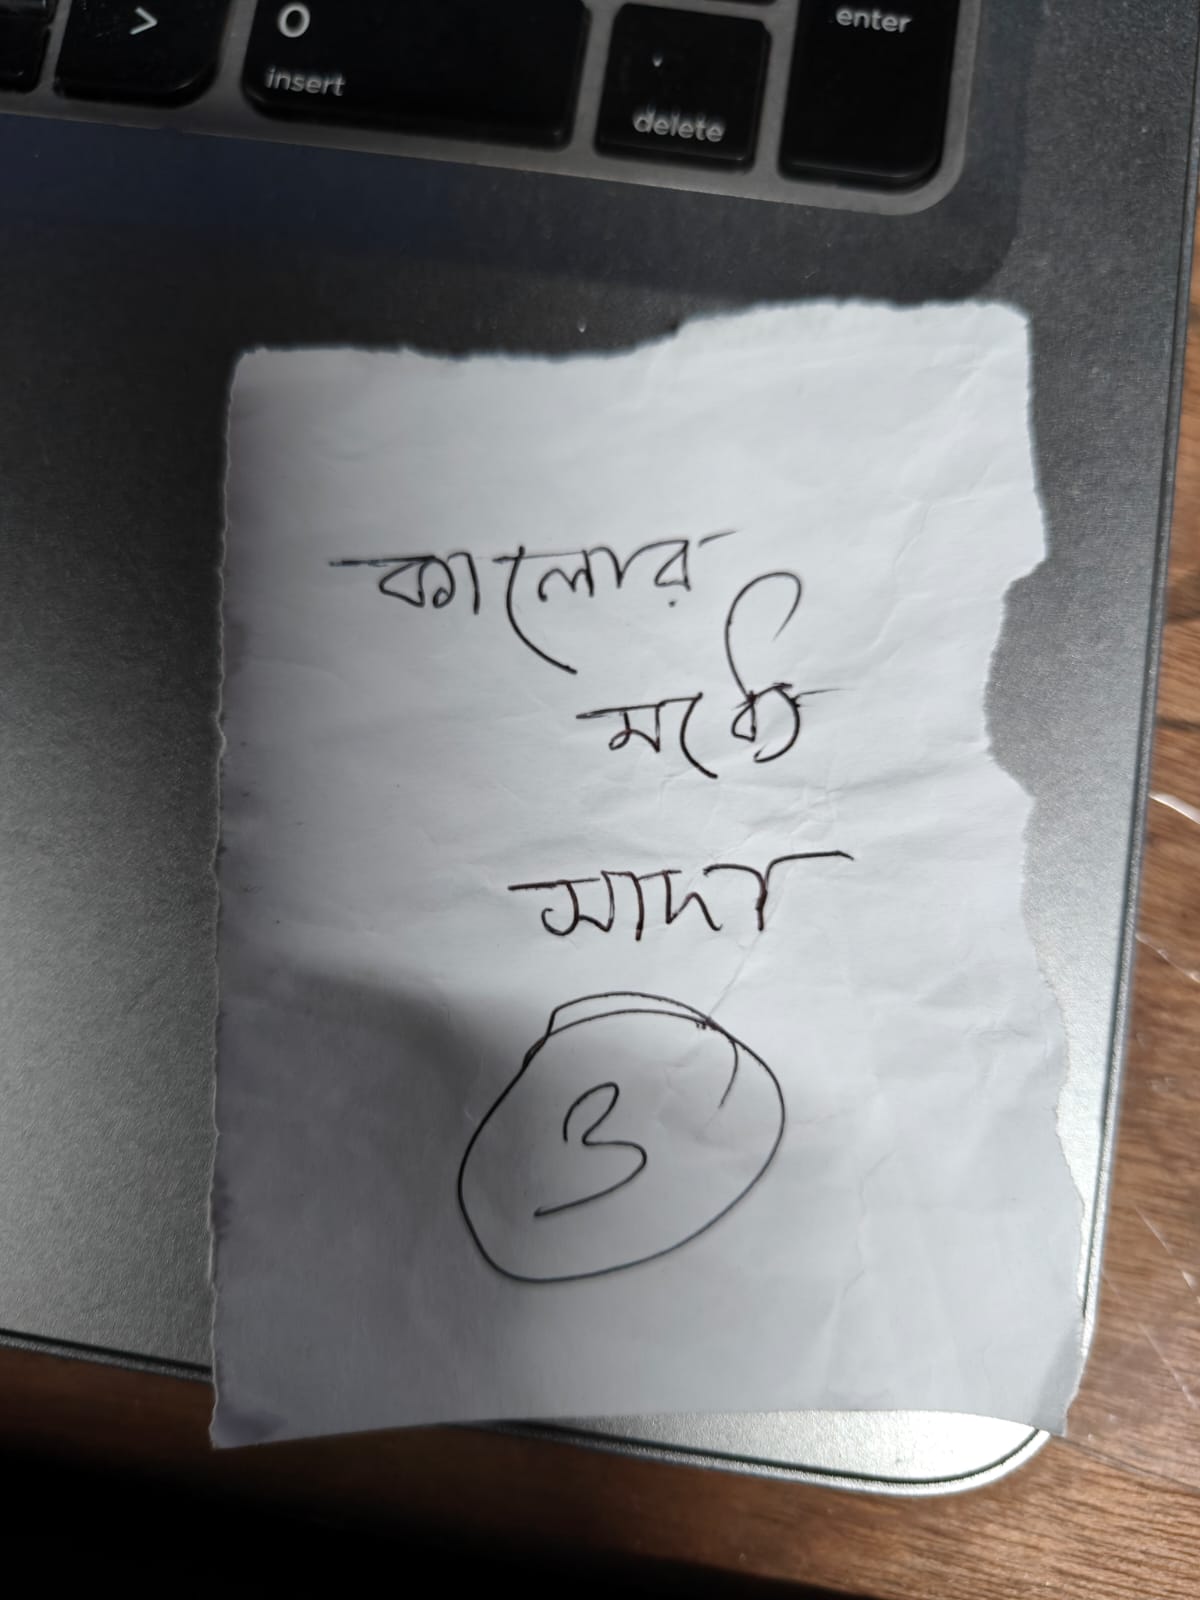 >
0
insert
.
delete
enter
কালোর
মধ্যে
সাদা
৩